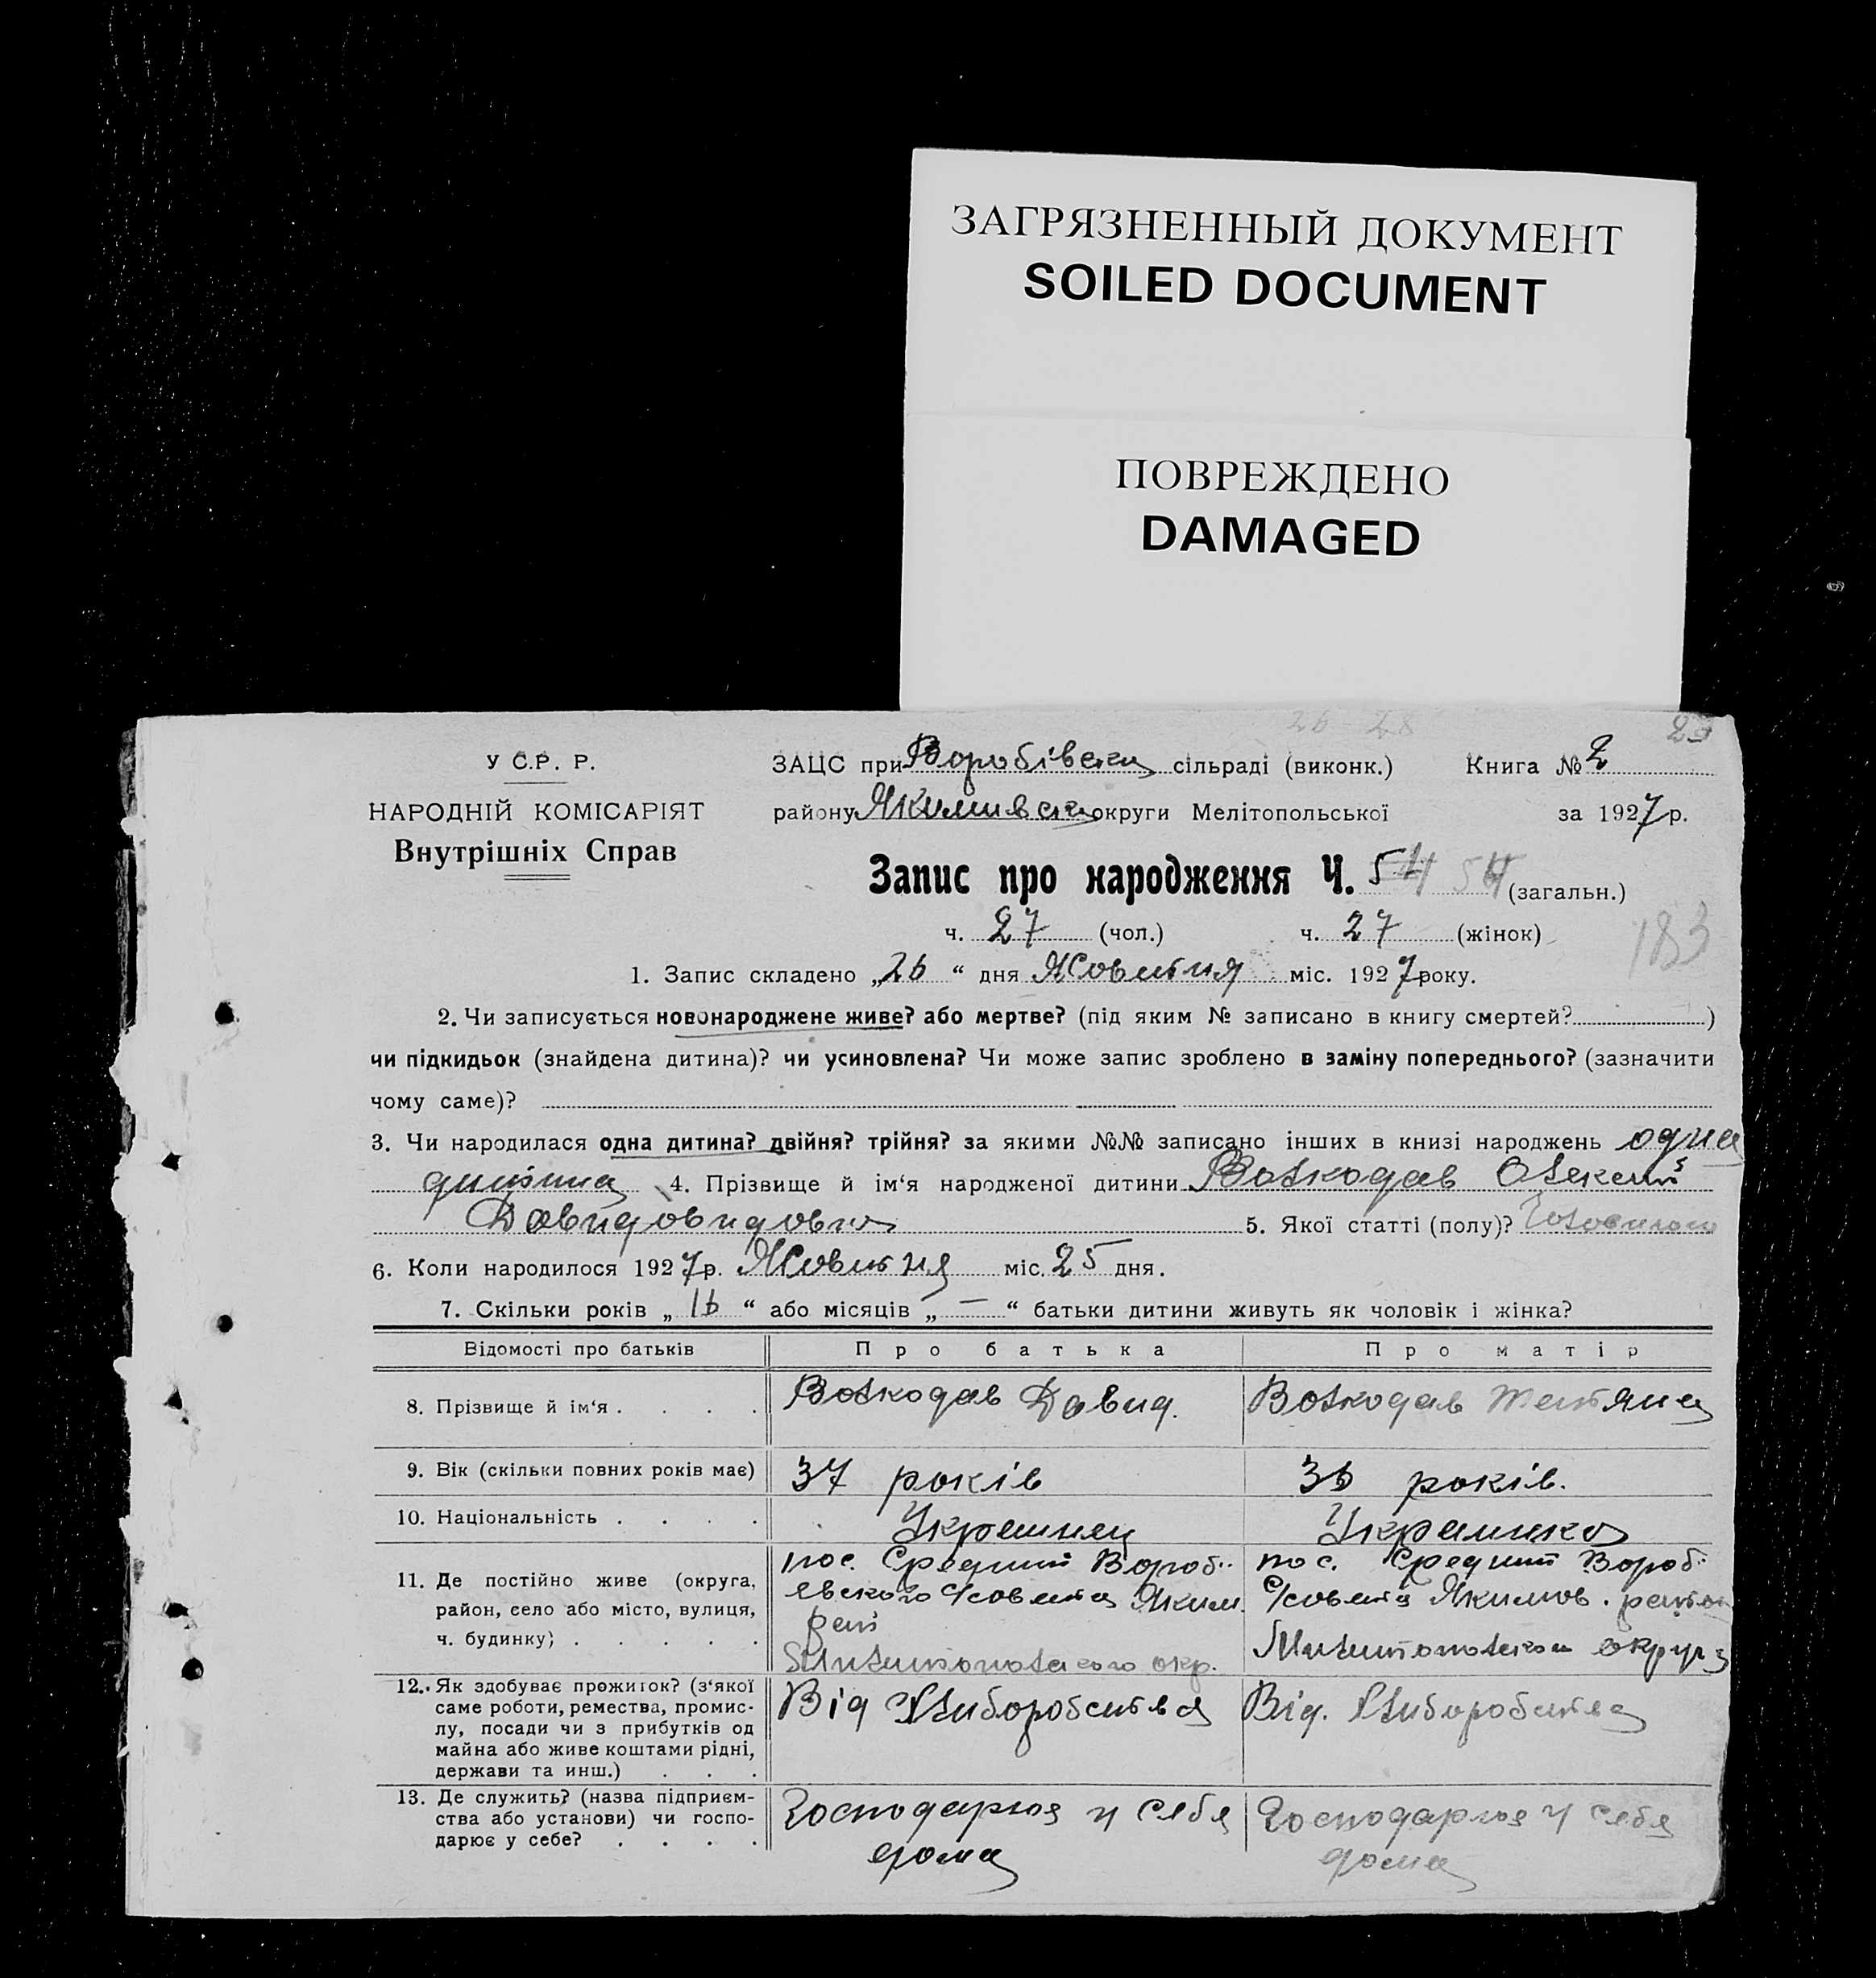 ЗАГРЯЗНЕННЫЙ ДОКУМЕНТ
SOILED DOCUMENT
ПОВРЕЖДЕНО
DAMAGED
26-28 23
У С.Р. Р.
НАРОДНІЙ КОМІСАРІЯТ
Внутрішніх Справ
ЗАЦС при Воробівски сільраді (виконк.) Книга № 2
району Якимивски округи Мелітопольської за 1927 р.
Запис про народження Ч. 54 54 (загальн.)
ч. 27 (чол.) ч. 27 (жінок)
183
1. Запис складено „26“ дня Жовтня міс. 1927 року.
2. Чи записується новонароджене живе? або мертве? (під яким № записано в книгу смертей? )
чи підкидьок (знайдена дитина)? чи усиновлена? Чи може запис зроблено в заміну попереднього? (зазначити
чому саме)?
3. Чи народилася одна дитина? двійня? трійня? за якими №№ записано інших в книзі народжень одна
дитина 4. Прізвище й ім‘я народженої дитини Волкодав Олексий
Давидовидович 5. Якої статті (полу)?
6. Коли народилося 1927 р. Жовтня міс. 25 дня.
7. Скільки років „16“ або місяців „—“ батьки дитини живуть як чоловік і жінка?
Відомості про батьків Про батька Про матір
8. Прізвище й ім‘я . . . . Волкодав Давид. Волкодав Тетяна
9. Вік (скільки повних років має) 37 років 36 років.
10. Національність . . . . Украинец Украинка
11. Де постійно живе (округа, район, село або місто, вулиця, ч. будинку) . . . . .
пос. Средний Вороб..
евского с/совета Яким.
рай
Мелитопольского окр.
пос. Средний Вороб.
С/совета Якимов. район
Милитопольскои округи
12. Як здобуває прожиток? (з‘якої
саме роботи, ремества, промис-
лу, посади чи з прибутків од
майна або живе коштами рідні,
держави та инш.) . . .
Від Хлиборобства Від. Хлиборобства
13. Де служить? (назва підприєм-
ства або установи) чи госпо-
дарює у себе? . . . .
Господарюя у себя
дома
Господарюя у себя
дома